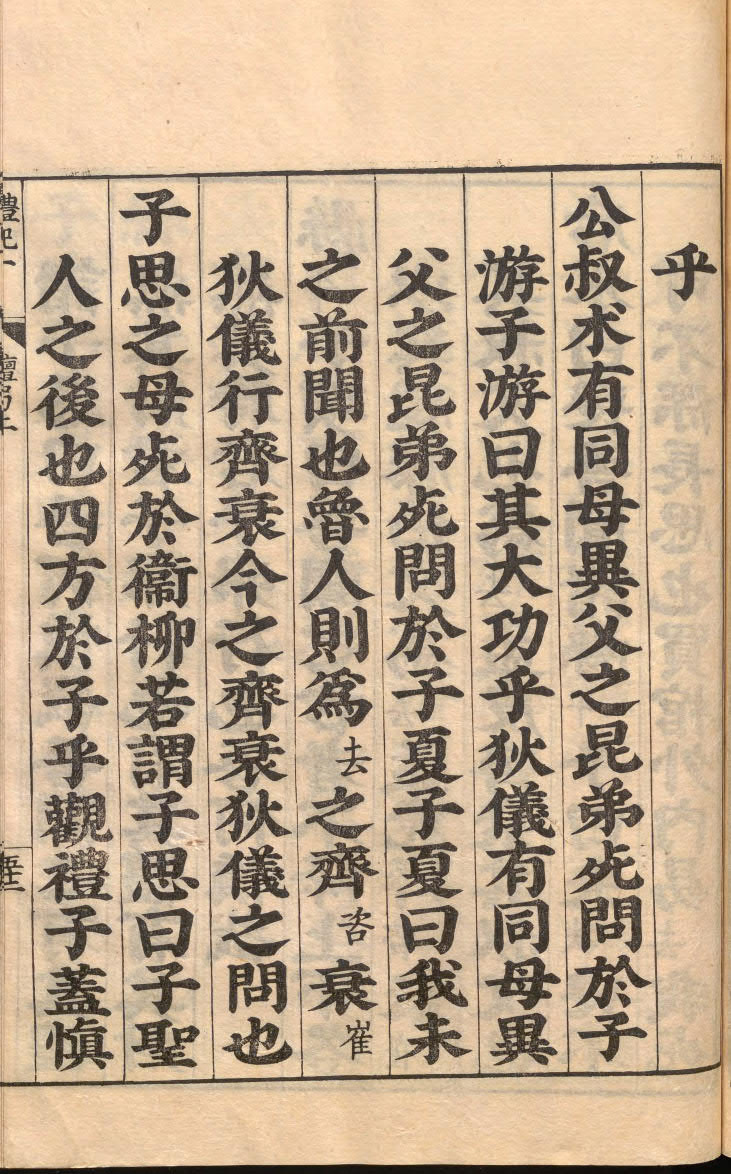 乎
公叔朮有同母異父之昆弟死問於子
游子游曰其大功乎狄儀有同母異
父之昆弟死問於子夏子夏曰我未
之前聞也魯人則爲去之齊咨衰崔
狄儀行齊衰今之齊衰狄儀之問也
子思之母死於衞柳若謂子思曰子聖
人之後也四方於子乎觀禮子蓋慎
禮記一
檀弓上